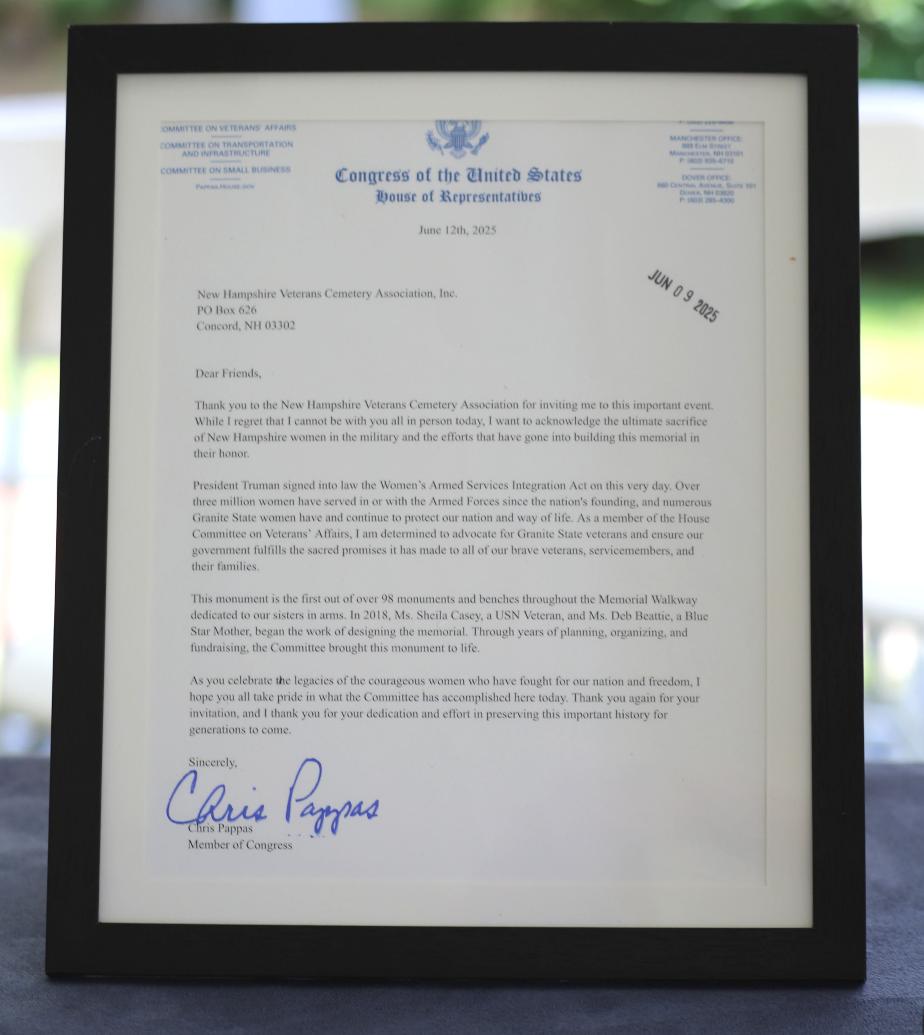 COMMITTEE ON VETERANS' AFFAIRS
COMMITTEE ON TRANSPORTATION
AND INFRASTRUCTURE
COMMITTEE ON SMALL BUSINESS
PAPPAS.HOUSE.GOV
Congress of the United States
House of Representatives
June 12th, 2025
MANCHESTER OFFICE:
889 ELM STREET
MANCHESTER, NH 03101
P: (603) 935-6710
DOVER OFFICE:
660 CENTRAL AVENUE, SUITE 101
DOVER, NH 03820
P: (603) 285-4300
JUN 09 2025
New Hampshire Veterans Cemetery Association, Inc.
PO Box 626
Concord, NH 03302
Dear Friends,
Thank you to the New Hampshire Veterans Cemetery Association for inviting me to this important event.
While I regret that I cannot be with you all in person today, I want to acknowledge the ultimate sacrifice
of New Hampshire women in the military and the efforts that have gone into building this memorial in
their honor.
President Truman signed into law the Women's Armed Services Integration Act on this very day. Over
three million women have served in or with the Armed Forces since the nation's founding, and numerous
Granite State women have and continue to protect our nation and way of life. As a member of the House
Committee on Veterans' Affairs, I am determined to advocate for Granite State veterans and ensure our
government fulfills the sacred promises it has made to all of our brave veterans, servicemembers, and
their families.
This monument is the first out of over 98 monuments and benches throughout the Memorial Walkway
dedicated to our sisters in arms. In 2018, Ms. Sheila Casey, a USN Veteran, and Ms. Deb Beattie, a Blue
Star Mother, began the work of designing the memorial. Through years of planning, organizing, and
fundraising, the Committee brought this monument to life.
As you celebrate the legacies of the courageous women who have fought for our nation and freedom, I
hope you all take pride in what the Committee has accomplished here today. Thank you again for your
invitation, and I thank you for your dedication and effort in preserving this important history for
generations to come.
Sincerely,
Chris Pappas
Chris Pappas
Member of Congress